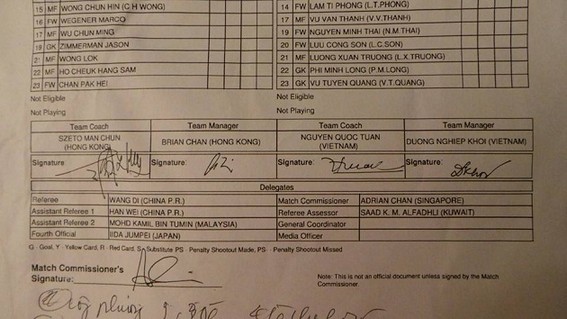 15 MF WONG CHUN HIN (C H WONG)
16 FW WEGENER MARCO
17 MF WU CHUN MING
19 GK ZIMMERMAN JASON
21 MF WONG LOK
22 MF HO CHEUK HANG SAM
23 FW CHAN PAK HEI
14 FW LAM TI PHONG (L.T.PHONG)
17 MF VU VAN THANH (V.V.THANH)
19 FW NGUYEN MINH THAI (N.M.THAI)
20 FW LUU CONG SON (L.C.SON)
21 MF LUONG XUAN TRUONG (L.X.TRUONG)
22 GK PHI MINH LONG (P.M.LONG)
23 GK VU TUYEN QUANG (V.T.QUANG)
Not Eligible
Not Eligible
Not Playing
Not Playing
Team Coach Team Manager Team Coach Team Manager
SZETO MAN CHUN (HONG KONG) BRIAN CHAN (HONG KONG) NGUYEN QUOC TUAN (VIETNAM) DUONG NGHIEP KHOI (VIETNAM)
Signature: Signature: Signature: Signature:
Delegates
Referee WANG DI (CHINA P.R.) Match Commissioner ADRIAN CHAN (SINGAPORE)
Assistant Referee 1 HAN WEI (CHINA P.R.) Referee Assessor SAAD K. M. ALFADHLI (KUWAIT)
Assistant Referee 2 MOHD KAMIL BIN TUMIN (MALAYSIA) General Coordinator
Fourth Official IIDA JUMPEI (JAPAN) Media Officer
G - Goal, Y - Yellow Card, R - Red Card, S - Substitute PS - Penalty Shootout Made, PS - Penalty Shootout Missed
Match Commissioner's
Signature:
Note: This is not an official document unless signed by the Match
Commissioner